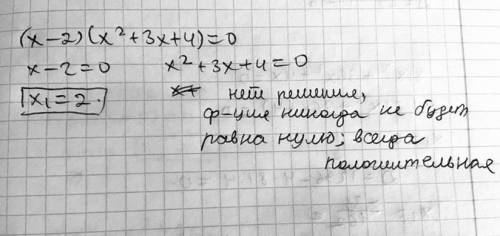 (x-2)(x²+3x+4)=0
x-2=0 x²+3x+4=0
x₁=2. нет решение,
ф-ция никогда не будет
равна нулю; всегда
положительная